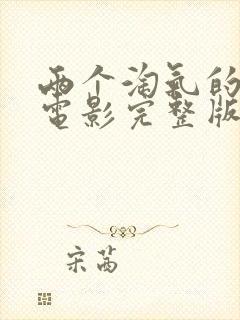 两个淘气的
电影完整版
宋茜